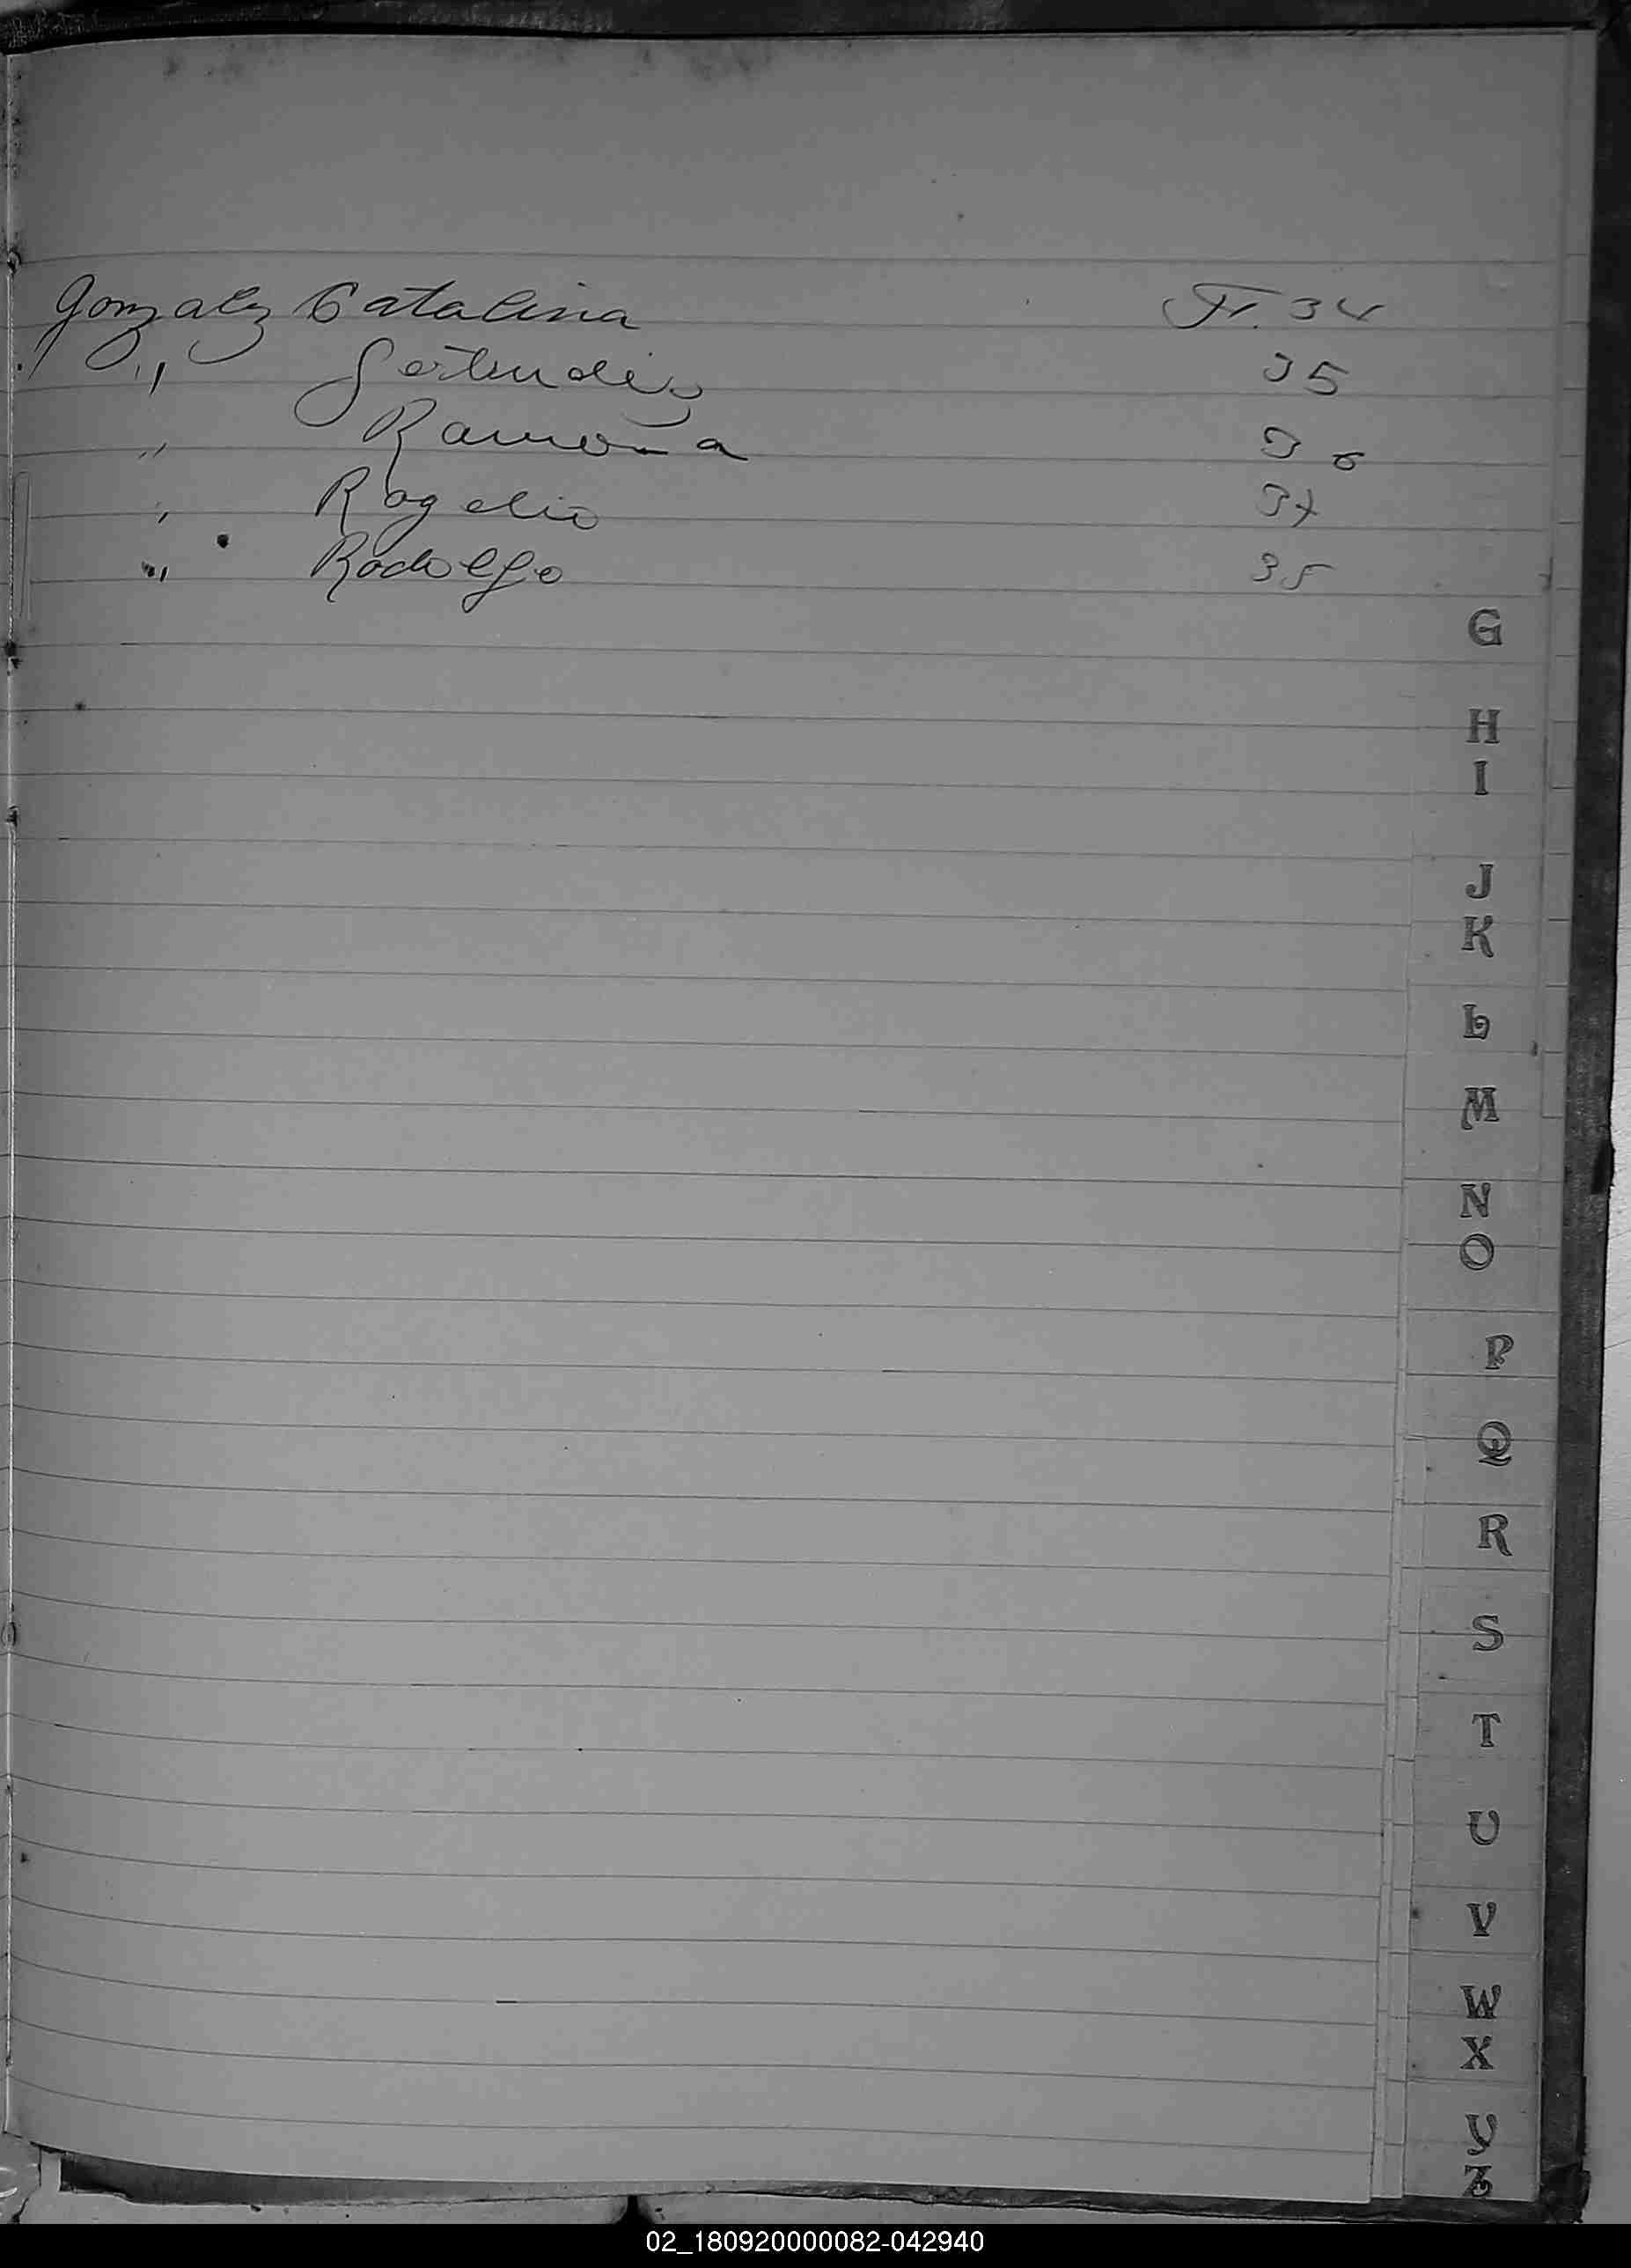 Gonzalez Catalina Fl. 34
,, Gertrudis 35
,, Ramona 36
,, Rogelio 37
,, Rodolfo 38
G
H
I
J
K
L
M
N
O
P
Q
R
S
T
U
V
W
X
Y
Z
02_180920000082-042940